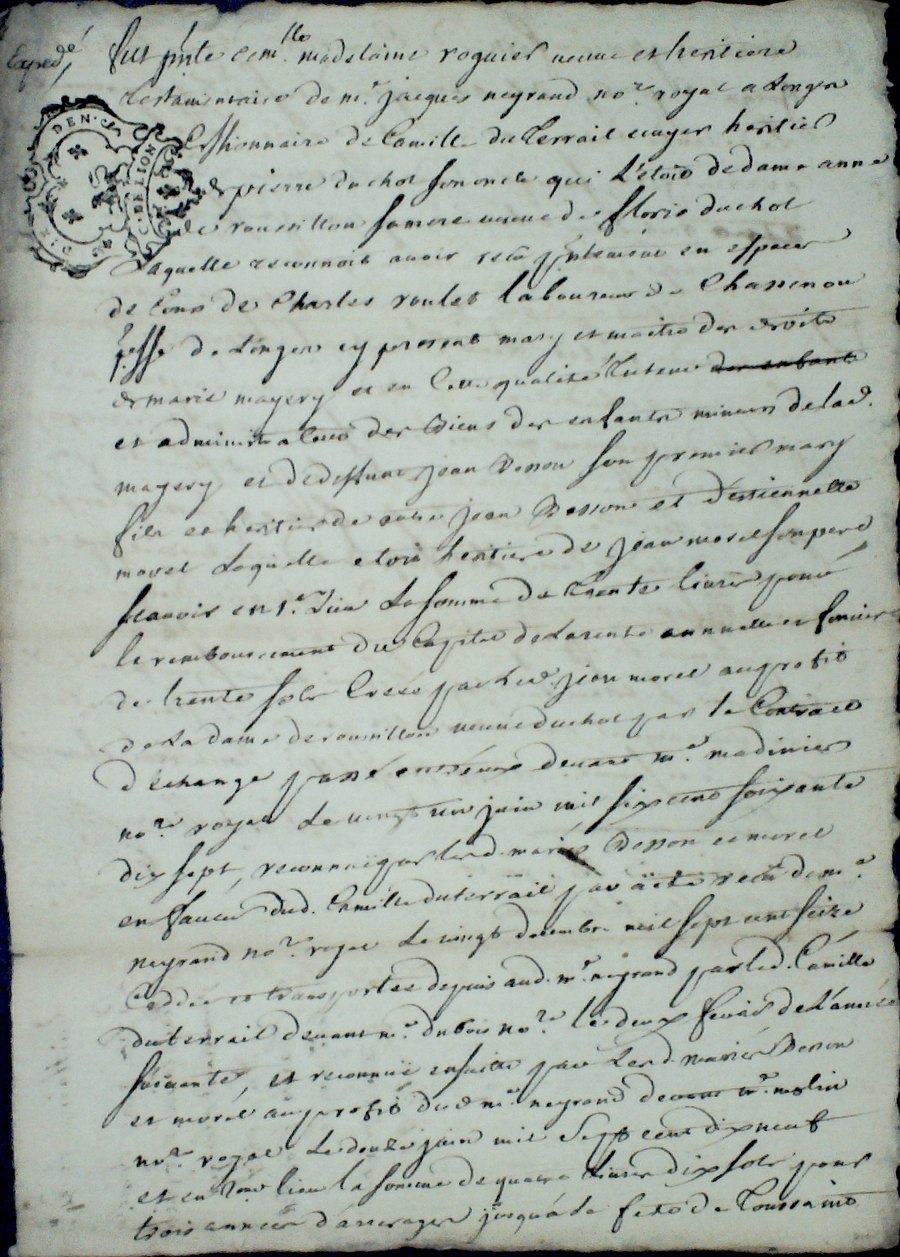 Expedé
DIX DEN.
G. DE LION
fut pnte demlle madelaine roguier veuve et heritiere
testamentaire de mr. jacques neyrand nore. royal a Longes
Cessionnaire de Camille du Terrail ecuyer heritier
de pierre du chol son oncle qui l'etoit de dame anne
de roussillon sa mere veuve de floris du chol
Laquelle reconnoit avoir recu pntement en especes
de Cours de Charles roulet laboureur de Chassenou
psse de Longes cy present mary et maitre des droits
de marie mayery et en cette qualité Tuteur des enfants
et administrateur des Biens des enfants mineurs de lad.
mayery et de deffunt jean Besson son premier mary
fils et heritier de autre jean Besson et d'estiennette
morel Laquelle etoit heritiere de jean morel son pere
scavoir en 1er. Lieu La somme de Trente livres pour
le remboursement du Capital de la rente annuelle et fonciere
de trente sols Creée par led. jean morel au profit
de La dame de roussillon veuve du chol par le Contract
d'échange passé entre eux devant mr. madinier
nore. royal Le vingt un juin mil six cent soixante
dix sept, reconnue par lesd. mariés Besson et morel
en faveur dud. Camille du terrail par acte recu de mr.
neyrand nore. royal Le vingt decembre mil sept cent seize
Ceddée et transportée depuis aud. mr. neyrand par led. Camille
du terrail devant mr. dubois nore. le deux fevrier de L'année
suivante, et reconnue ensuitte par Lesd. mariés Besson
et morel au profit dud. mr. neyrand devant mr. molin
nore. royal Le douze juin mil sept cent dix neuf
et en 2me lieu la somme de quatre livres dix sols pour
trois années d'arrerages jusqu'à la feste de Toussaint